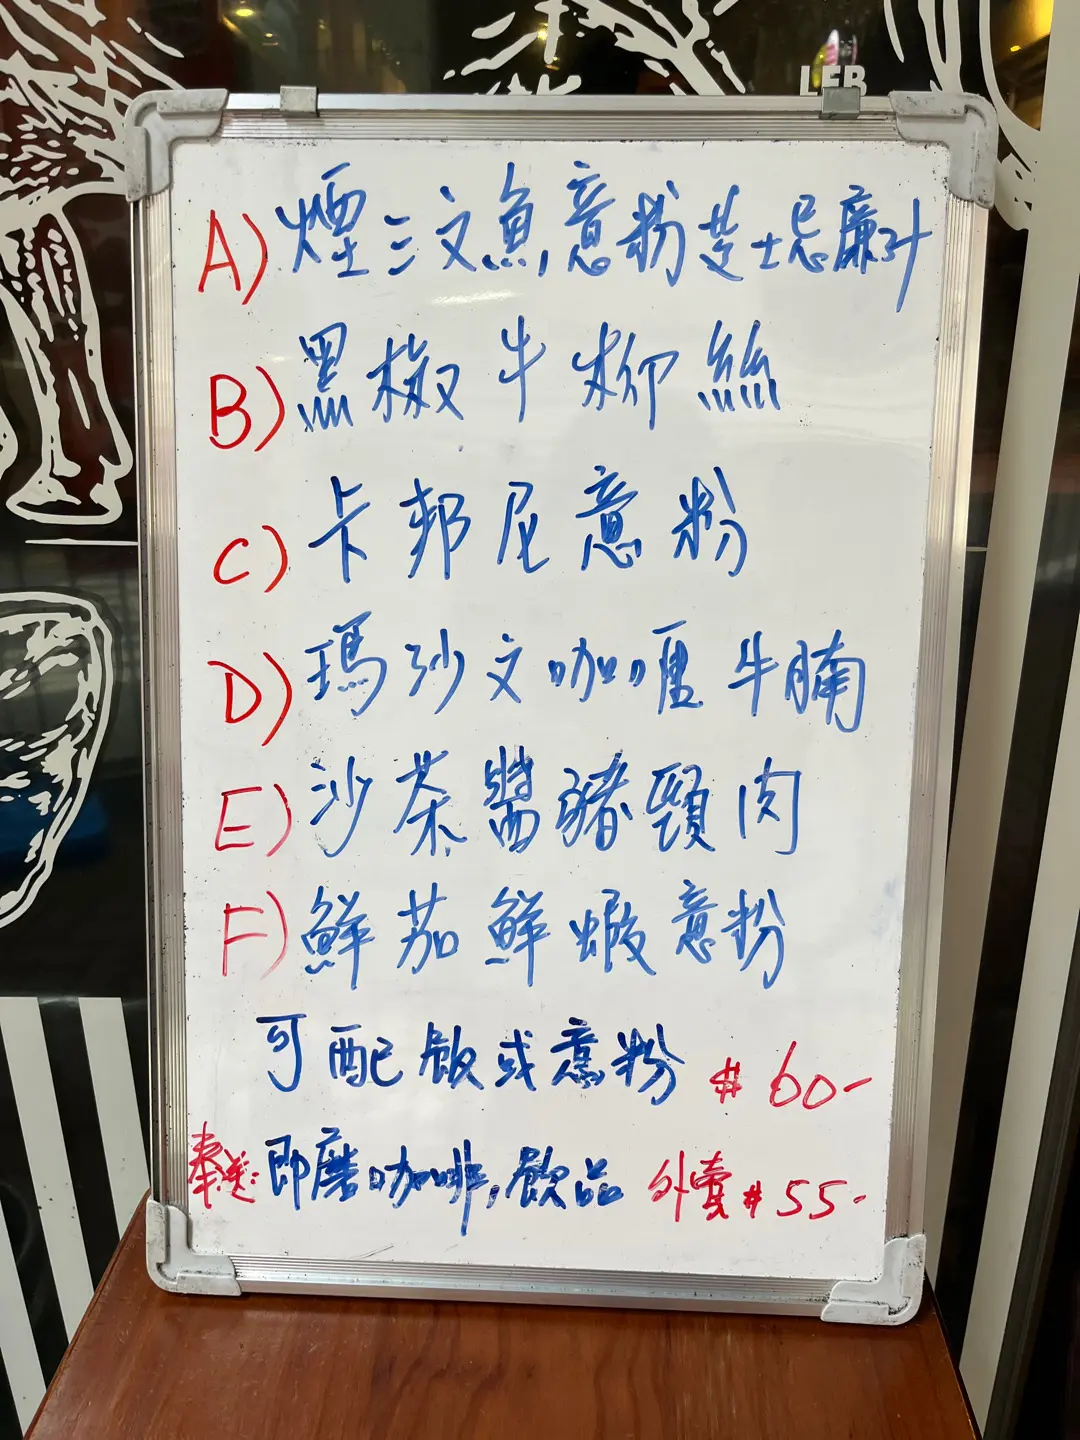 LFB
A) 煙三文魚意粉芝士忌廉汁
B) 黑椒牛柳絲
C) 卡邦尼意粉
D) 瑪沙文咖喱牛腩
E) 沙茶醬豬頸肉
F) 鮮茄鮮蝦意粉
可配飯或意粉 # 60-
奉送: 即磨咖啡,飲品 外賣 # 55-